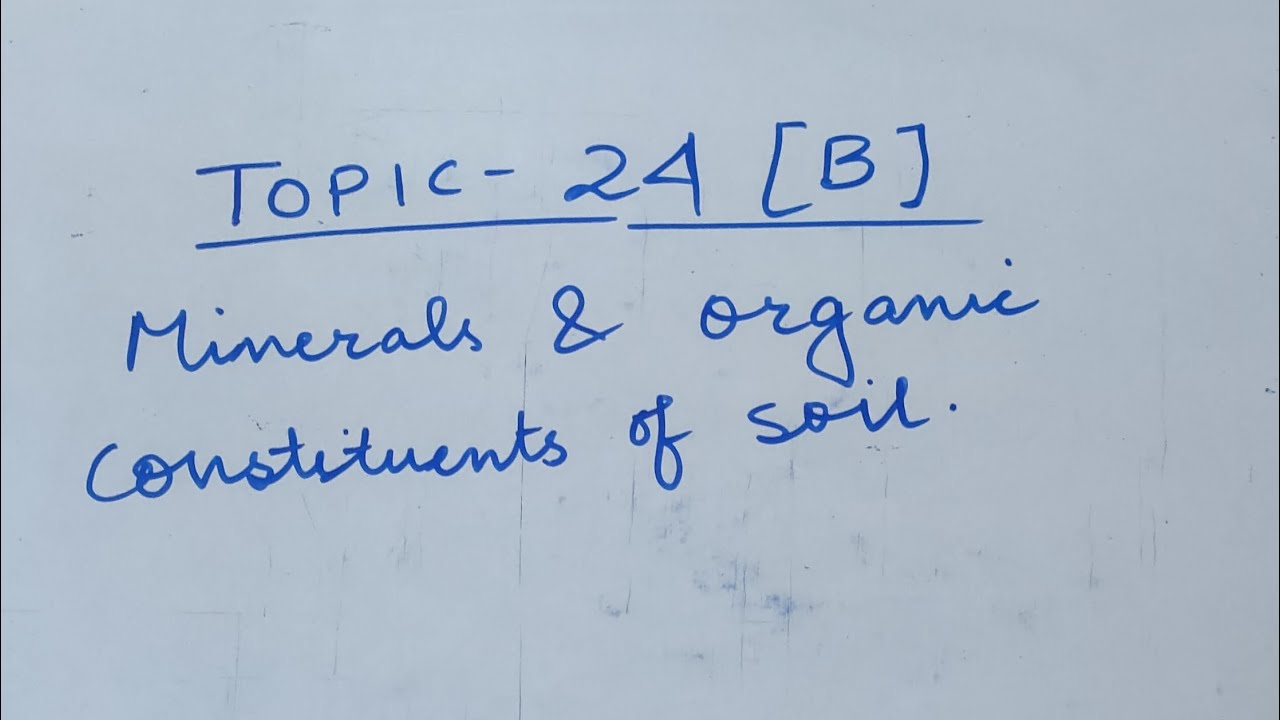 TOPIC- 24 [B]
Minerals & organic
constituents of soil.